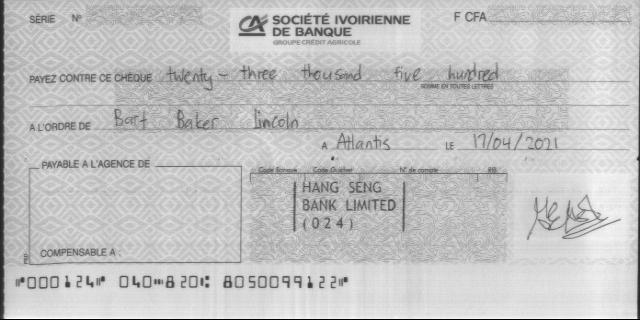 SÉRIE N°
CA SOCIÉTÉ IVOIRIENNE
DE BANQUE
GROUPE CRÉDIT AGRICOLE
F CFA
PAYEZ CONTRE CE CHÈQUE twenty-three thousand five hundred
SOMME EN TOUTES LETTRES
A L'ORDRE DE Bart Baker Lincoln
A Atlantis LE 17/04/2021
PAYABLE A L'AGENCE DE
Code Banque Code Guichet N° de compte RIB
HANG SENG
BANK LIMITED
(024)
COMPENSABLE A :
⑈000124⑈ 040⑉820⑆ 8050099122⑈